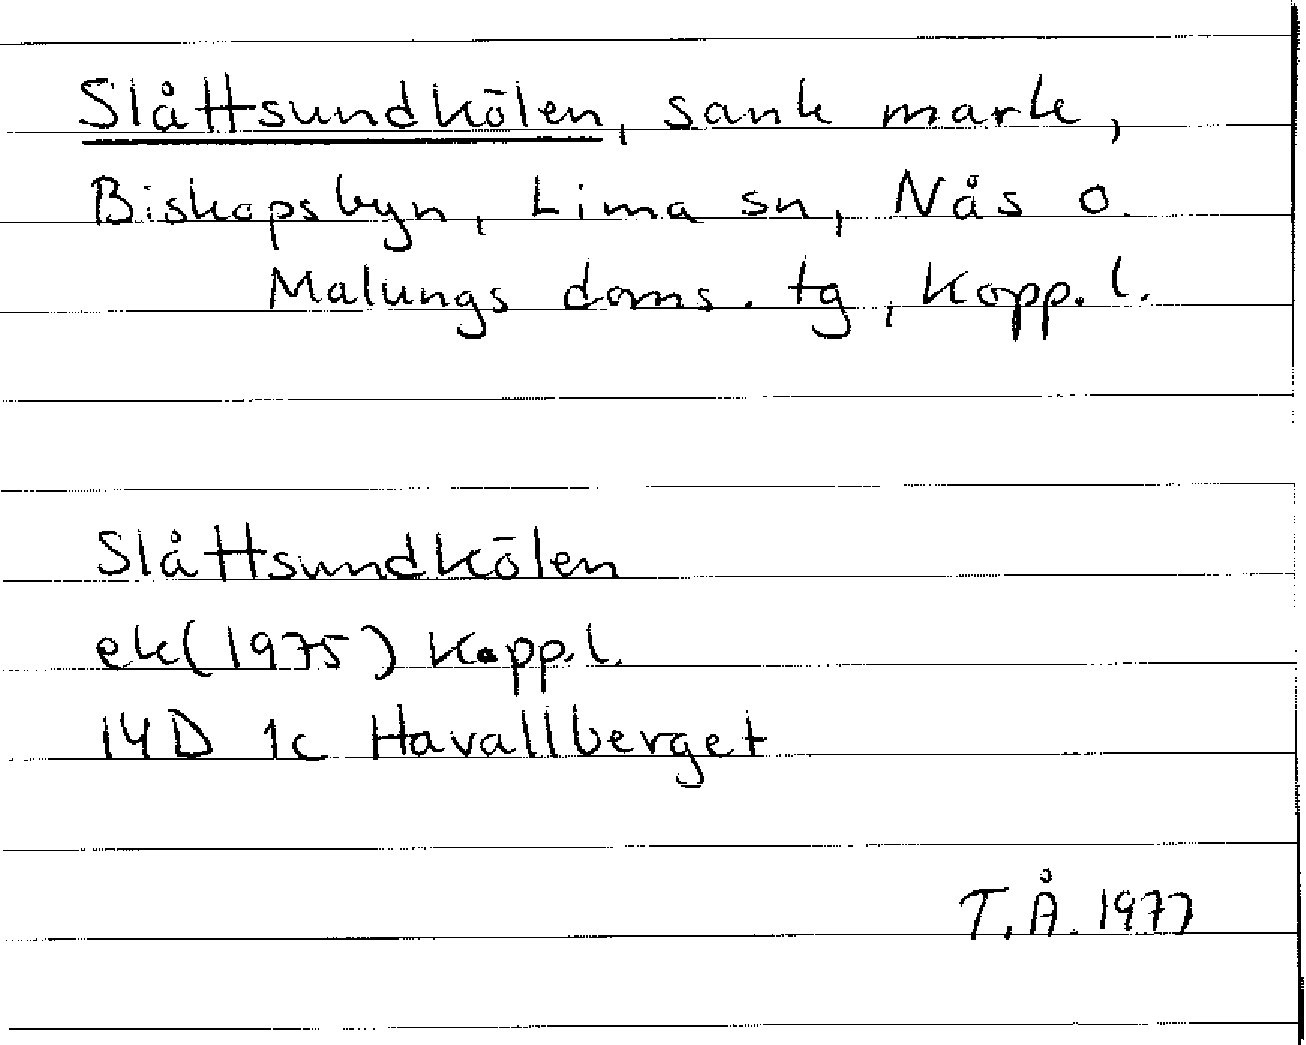 Slåttsundkölen, sank mark,
Biskopsbyn, Lima sn, Nås o.
Malungs doms. tg, Kopp. l.
Slåttsundkölen
ek(1975) Kopp.l.
14D 1c Havallberget
T.Å. 1977